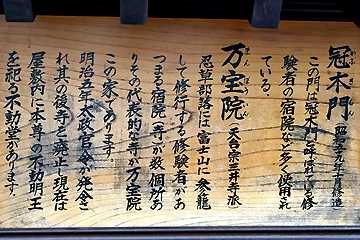 冠木門
この門は冠木門と呼ばれ、修
験者の宿院にど多く使用され
ている。
万宝院
まんぽういん
天台宗三井寺派
忍草部落には富士山に参籠
して修行する修験者があ
つまる宿院(寺)が数個所あ
りその代表的な寺が万宝院
この家であります。
明治五年太政官令が発令さ
れ其の後寺を廃止し現在は
屋敷内に本尊の不動明王
を祀る不動堂があります。